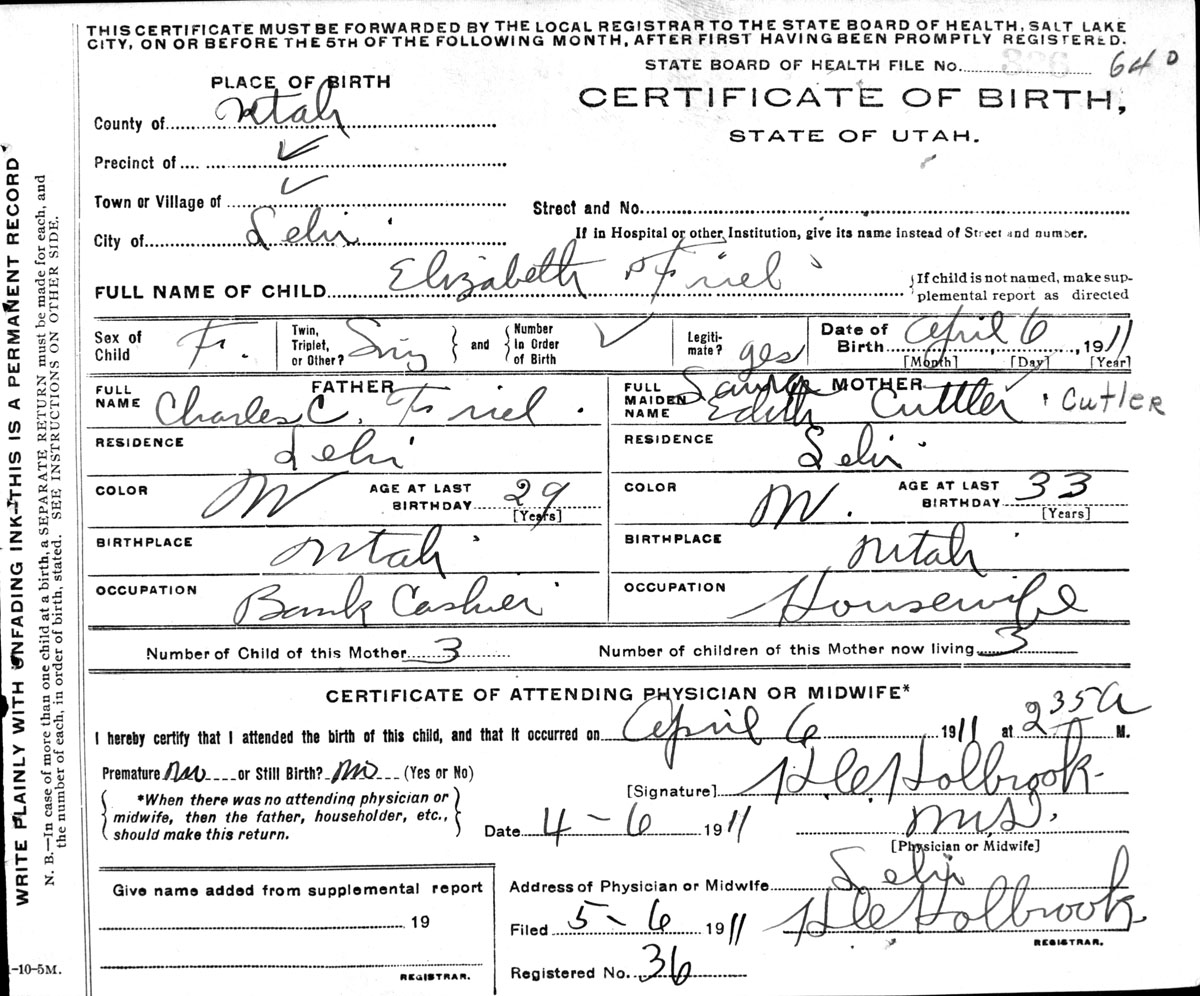 THIS CERTIFICATE MUST BE FORWARDED BY THE LOCAL REGISTRAR TO THE STATE BOARD OF HEALTH, SALT LAKE
CITY, ON OR BEFORE THE 5TH OF THE FOLLOWING MONTH, AFTER FIRST HAVING BEEN PROMPTLY REGISTERED.
STATE BOARD OF HEALTH FILE No. 64
PLACE OF BIRTH
CERTIFICATE OF BIRTH,
STATE OF UTAH.
County of Utah
Precinct of ✓
Town or Village of ✓
Street and No.
City of Lehi
If in Hospital or other Institution, give its name instead of Street and number.
FULL NAME OF CHILD Elizabeth Friel
{If child is not named, make sup-
plemental report as directed
Sex of Child F.
Twin, Triplet, or Other? Sing
and
Number In Order of Birth ✓
Legiti- mate? yes
Date of Birth April 6, 1911
[Month] [Day] [Year]
FATHER
FULL NAME Charles C. Friel
MOTHER
FULL MAIDEN NAME Edith Cuttler Cutler
RESIDENCE Lehi
RESIDENCE Lehi
COLOR W
AGE AT LAST BIRTHDAY 29
[Years]
COLOR W.
AGE AT LAST BIRTHDAY 33
[Years]
BIRTHPLACE Utah
BIRTHPLACE Utah
OCCUPATION Bank Cashier
OCCUPATION Housewife
Number of Child of this Mother 3
Number of children of this Mother now living 3
CERTIFICATE OF ATTENDING PHYSICIAN OR MIDWIFE*
I hereby certify that I attended the birth of this child, and that it occurred on April 6 1911 at 2 35 A M.
Premature no or Still Birth? no (Yes or No)
[Signature] H C Holbrook
{ *When there was no attending physician or
midwife, then the father, householder, etc.,
should make this return. }
Date 4-6 1911
M.D.
[Physician or Midwife]
Give name added from supplemental report
19
REGISTRAR.
Address of Physician or Midwife Lehi
Filed 5-6 1911 H C Holbrook
REGISTRAR.
Registered No. 36
-10-5M.
WRITE PLAINLY WITH UNFADING INK—THIS IS A PERMANENT RECORD
N. B.—In case of more than one child at a birth, a SEPARATE RETURN must be made for each, and
the number of each, in order of birth, stated. SEE INSTRUCTIONS ON OTHER SIDE.